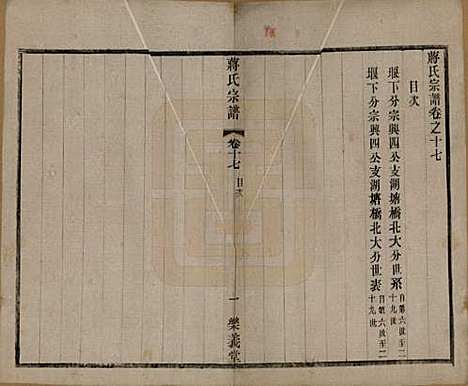 蔣氏宗譜卷之十七
目次
堰下分宗興四公支湖塘橋北大分世系自第六世至二十九世
堰下分宗興四公支湖塘橋北大分世表自第六世至二十九世
蔣氏宗譜
卷十七
目次
一
樂義堂